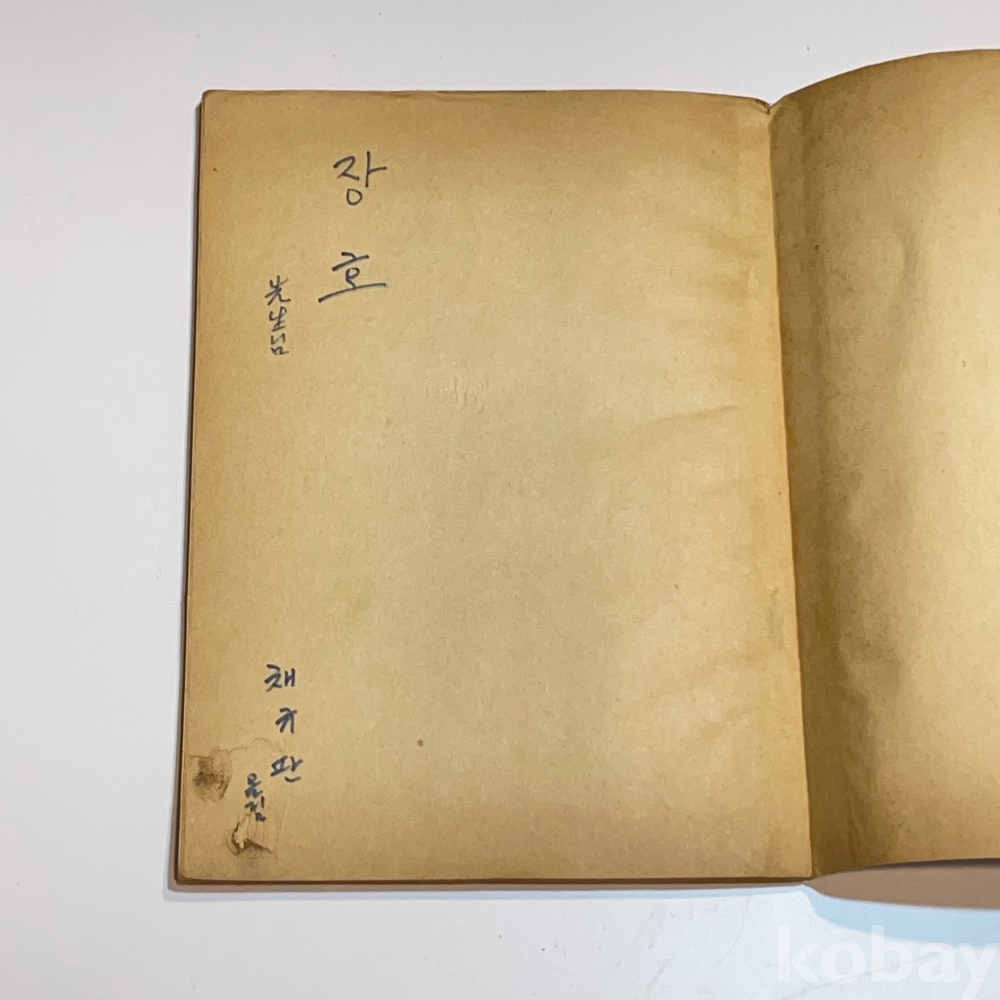 장호
先生님
채규판
올림
kobay